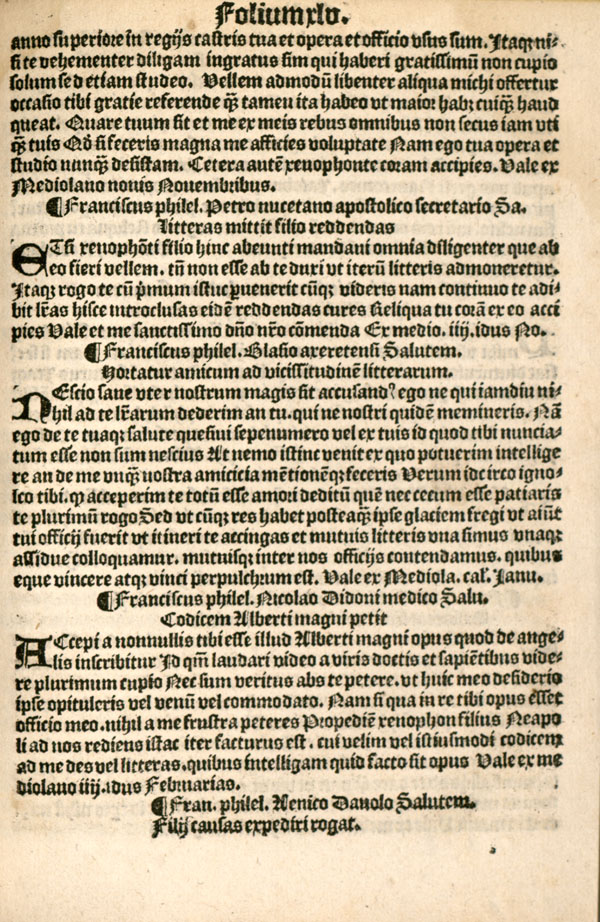 Folium xlv.
anno superiore in regijs castris tua et opera et officio vsus sum. Itaqꝫ ni⸗
si te vehementer diligam ingratus sim qui haberi gratissimū non cupio
solum sed etiam studeo. Vellem admodū libenter aliqua michi offertur
occasio tibi gratie referende qꝫ̄ tameu ita habeo vt maior habꝫ cuiqꝫ haud
queat. Quare tuum sit et me ex meis rebus omnibus non secus iam vti
qꝫ̄ tuis Qð si feceris magna me afficies voluptate Nam ego tua opera et
studio nunqꝫ̄ desistam. Cetera autē xenophonte coram accipies. Vale ex
Mediolano nouis Nouembribus.
¶Franciscus philel. Petro nucetano apostolico secretario Sa.
Litteras mittit filio reddendas
ETsi xenophōti filio hinc abeunti mandaui omnia diligenter que ab
eo fieri vellem. tn̄ non esse ab te duxi vt iterū litteris admoneretur.
Itaqꝫ rogo te cū pͥmum istuc ꝑuenerit cūqꝫ videris nam continuo te adi⸗
bit lr̄as hisce introclusas eidē reddendas cures Reliqua tu corā ex eo acci
pies Vale et me sanctissimo dn̄o nr̄o cōmenda Ex medio. iiij. idus No.
¶Franciscus philel. Blasio axeretensi Salutem.
Hortatur amicum ad vicissitudinē litterarum.
NEscio sane vter nostrum magis sit accusandꝰ ego ne qui iamdiu ni⸗
hil ad te lr̄arum dederim an tu. qui ne nostri quidē memineris. Nā
ego de te tuaqꝫ salute quesiui sepenumero vel ex tuis id quod tibi nuncia⸗
tum esse non sum nescius At nemo istinc venit ex quo potuerim intellige
re an de me vnqꝫ̄ nostra amicicia mētionēqꝫ feceris Verum idcirco igno⸗
sco tibi. ꝙ acceperim te totū esse amori deditū quē nec cecum esse patiaris
te plurimū rogo Sed vt cūqꝫ res habet posteaqꝫ̄ ipse glaciem fregi vt aiūt
tui officij fuerit vt itineri te accingas et mutuis litteris vna simus vnaqꝫ
assidue colloquamur. mutuisqꝫ inter nos officijs contendamus. quibus
eque vincere atqꝫ vinci perpulchrum est. Vale ex Mediola. cal̓. Janu.
¶Franciscus philel. Nicolao Didoni medico Salu.
Codicem Alberti magni petit
ACcepi a nonnullis tibi esse illud Alberti magni opus quod de ange⸗
lis inscribitur Id qm̄ laudari video a viris doctis et sapiētibus vide⸗
re plurimum cupio Nec sum veritus abs te petere. vt huic meo desiderio
ipse opituleris vel venū vel commodato. Nam si qua in re tibi opus esset
officio meo. nihil a me frustra peteres Propediē xenophon filius Neapo
li ad nos rediens istac iter facturus est. cui velim vel istiusmodi codicem
ad me des vel litteras. quibus intelligam quid facto sit opus Vale ex me
diolano iiij. idus Februarias.
¶Fran. philel. Uenico Danolo Salutem.
Filij causas expediri rogat.